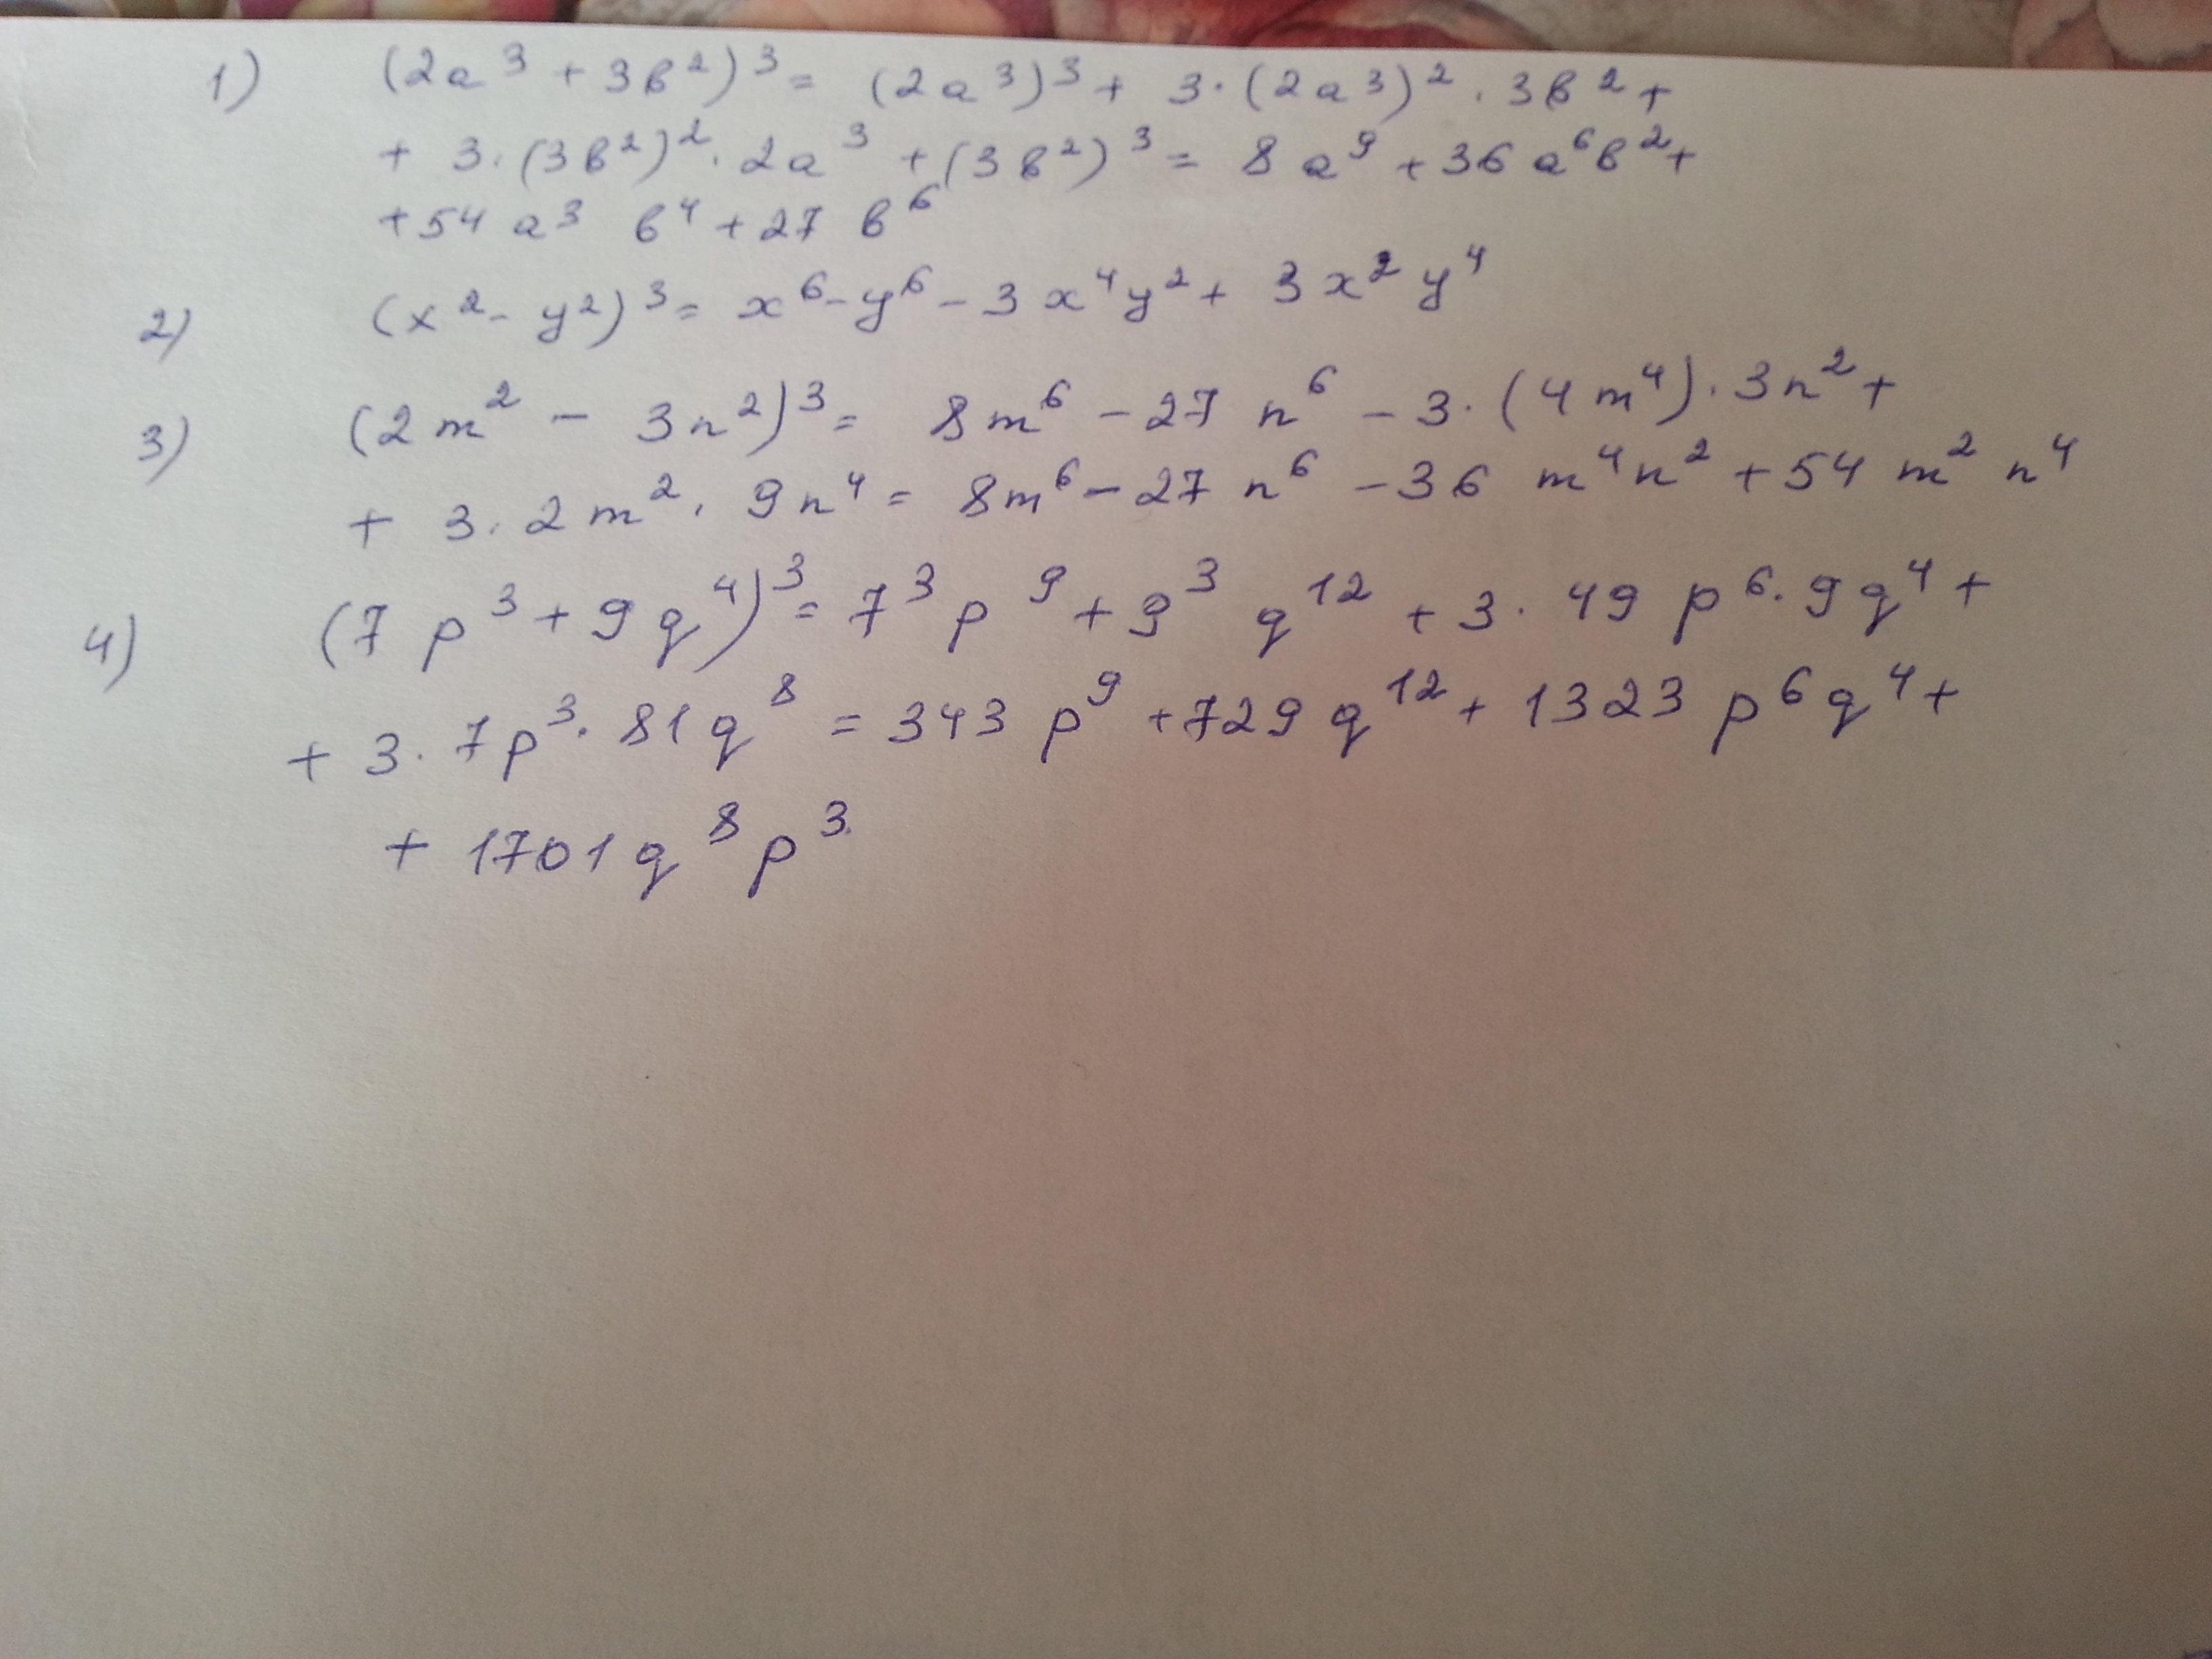 1) (2a³ + 3b²)³ = (2a³)³ + 3·(2a³)²·3b² +
+ 3·(3b²)²·2a³ + (3b²)³ = 8a⁹ + 36a⁶b² +
+ 54a³b⁴ + 27b⁶
2) (x² - y²)³ = x⁶ - y⁶ - 3x⁴y² + 3x²y⁴
3) (2m² - 3n²)³ = 8m⁶ - 27n⁶ - 3·(4m⁴)·3n² +
+ 3·2m²·9n⁴ = 8m⁶ - 27n⁶ - 36m⁴n² + 54m²n⁴
4) (7p³ + 9q⁴)³ = 7³p⁹ + 9³q¹² + 3·49p⁶·9q⁴ +
+ 3·7p³·81q⁸ = 343p⁹ + 729q¹² + 1323p⁶q⁴ +
+ 1701q⁸p³